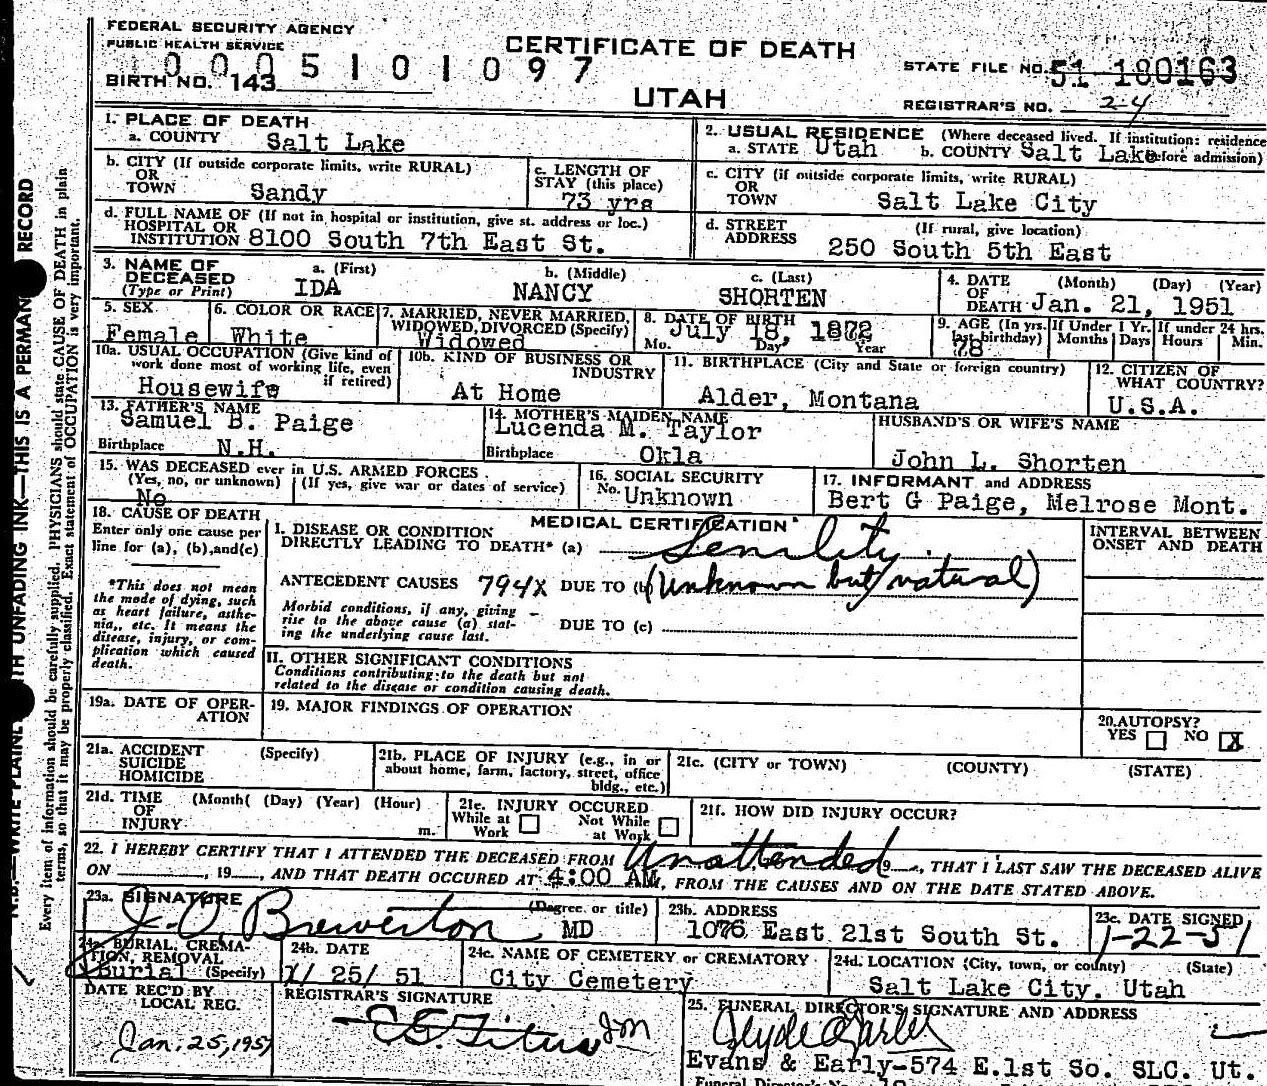 FEDERAL SECURITY AGENCY
PUBLIC HEALTH SERVICE
CERTIFICATE OF DEATH
STATE FILE NO. 51-180163
0005101097
BIRTH NO. 143
UTAH
REGISTRAR'S NO. 24
1. PLACE OF DEATH
a. COUNTY Salt Lake
2. USUAL RESIDENCE (Where deceased lived. If institution: residence before admission)
a. STATE Utah b. COUNTY Salt Lake
b. CITY (If outside corporate limits, write RURAL)
OR
TOWN Sandy
c. LENGTH OF
STAY (this place)
73 yrs
c. CITY (if outside corporate limits, write RURAL)
OR
TOWN Salt Lake City
d. FULL NAME OF (If not in hospital or institution, give st. address or loc.)
HOSPITAL OR
INSTITUTION 8100 South 7th East St.
d. STREET (If rural, give location)
ADDRESS 250 South 5th East
3. NAME OF
DECEASED
(Type or Print)
a. (First) b. (Middle) c. (Last)
IDA NANCY SHORTEN
4. DATE (Month) (Day) (Year)
OF
DEATH Jan. 21, 1951
5. SEX
Female
6. COLOR OR RACE
White
7. MARRIED, NEVER MARRIED,
WIDOWED, DIVORCED (Specify)
Widowed
8. DATE OF BIRTH
July 18, 1872
Mo. Day Year
9. AGE (In yrs. last birthday)
78
If Under 1 Yr.
Months Days
If under 24 hrs.
Hours Min.
10a. USUAL OCCUPATION (Give kind of
work done most of working life, even
if retired)
Housewife
10b. KIND OF BUSINESS OR
INDUSTRY
At Home
11. BIRTHPLACE (City and State or foreign country)
Alder, Montana
12. CITIZEN OF
WHAT COUNTRY?
U.S.A.
13. FATHER'S NAME
Samuel B. Paige
Birthplace N.H.
14. MOTHER'S MAIDEN NAME
Lucenda M. Taylor
Birthplace Okla
HUSBAND'S OR WIFE'S NAME
John L. Shorten
15. WAS DECEASED ever in U.S. ARMED FORCES
(Yes, no, or unknown) (If yes, give war or dates of service)
No
16. SOCIAL SECURITY
No. Unknown
17. INFORMANT and ADDRESS
Bert G Paige, Melrose Mont.
18. CAUSE OF DEATH
Enter only one cause per
line for (a), (b), and (c)
*This does not mean
the mode of dying, such
as heart failure, asthe-
nia,, etc. It means the
disease, injury, or com-
plication which caused
death.
MEDICAL CERTIFICATION
I. DISEASE OR CONDITION
DIRECTLY LEADING TO DEATH* (a) Senility
ANTECEDENT CAUSES 794X DUE TO (b) (Unknown but natural)
Morbid conditions, if any, giving
rise to the above cause (a) stat-
ing the underlying cause last.
DUE TO (c)
INTERVAL BETWEEN
ONSET AND DEATH
II. OTHER SIGNIFICANT CONDITIONS
Conditions contributing to the death but not
related to the disease or condition causing death.
19a. DATE OF OPER-
ATION
19. MAJOR FINDINGS OF OPERATION
20. AUTOPSY?
YES NO X
21a. ACCIDENT (Specify)
SUICIDE
HOMICIDE
21b. PLACE OF INJURY (e.g., in or
about home, farm, factory, street, office
bldg., etc.)
21c. (CITY or TOWN) (COUNTY) (STATE)
21d. TIME (Month( (Day) (Year) (Hour)
OF
INJURY m.
21e. INJURY OCCURED
While at Work Not While at Work
21f. HOW DID INJURY OCCUR?
22. I HEREBY CERTIFY THAT I ATTENDED THE DECEASED FROM Unattended 9, THAT I LAST SAW THE DECEASED ALIVE
ON , 19 , AND THAT DEATH OCCURED AT 4:00 AM, FROM THE CAUSES AND ON THE DATE STATED ABOVE.
23a. SIGNATURE (Degree or title)
J. O. Brewerton MD
23b. ADDRESS
1076 East 21st South St.
23c. DATE SIGNED
1-22-51
24a. BURIAL, CREMA-
TION, REMOVAL
Burial (Specify)
24b. DATE
1/ 25/ 51
24c. NAME OF CEMETERY or CREMATORY
City Cemetery
24d. LOCATION (City, town, or county) (State)
Salt Lake City. Utah
DATE REC'D BY
LOCAL REG.
Jan. 25, 1951
REGISTRAR'S SIGNATURE
25. FUNERAL DIRECTOR'S SIGNATURE AND ADDRESS
Evans & Early-574 E.1st So. SLC. Ut.
Every item of information should be carefully supplied. PHYSICIANS should state CAUSE OF DEATH in plain
terms, so that it may be properly classified. Exact statement of OCCUPATION is very important.
UNFADING INK—THIS IS A PERMAN RECORD